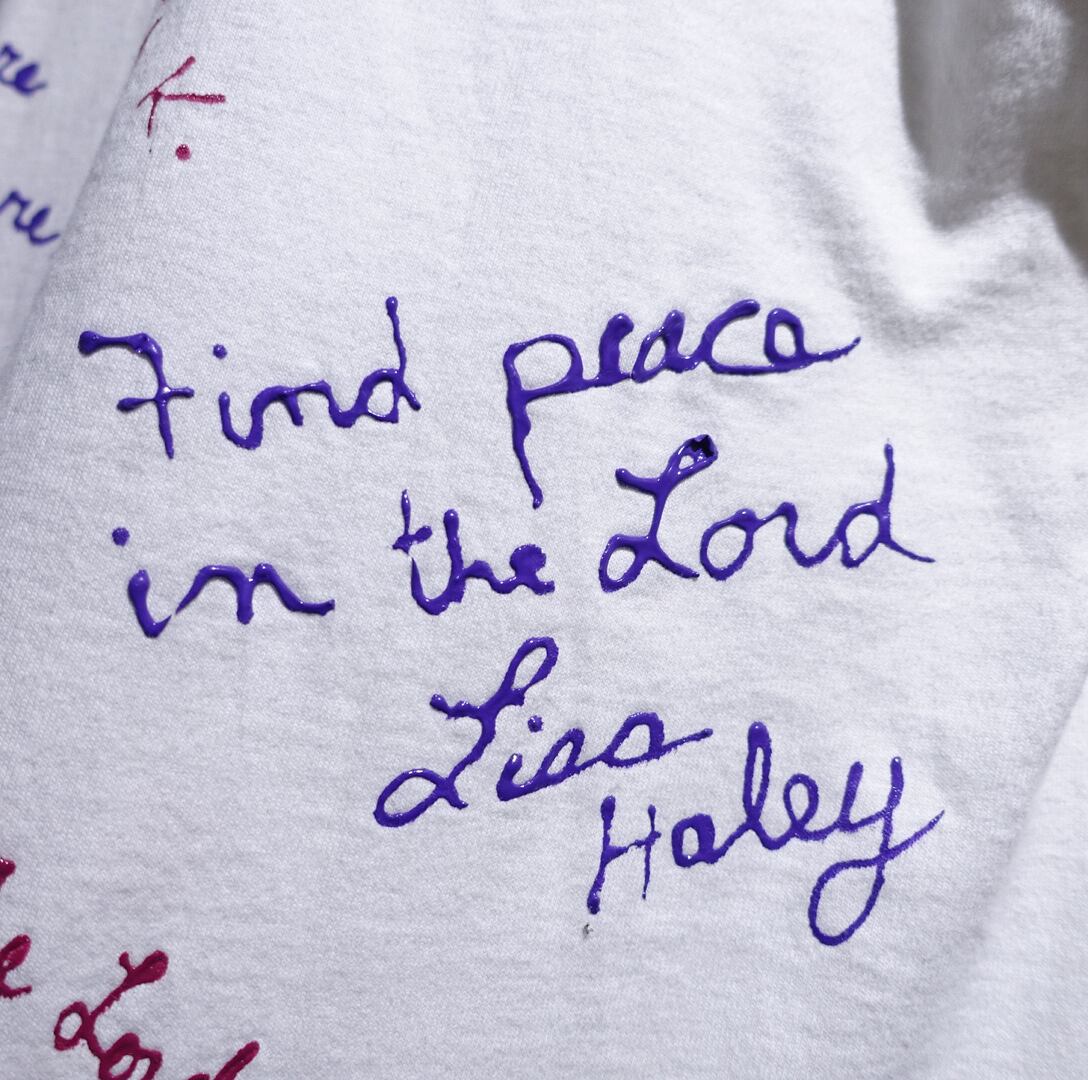 re
re
Find peace
in the Lord
Lisa
Haley
e Lord